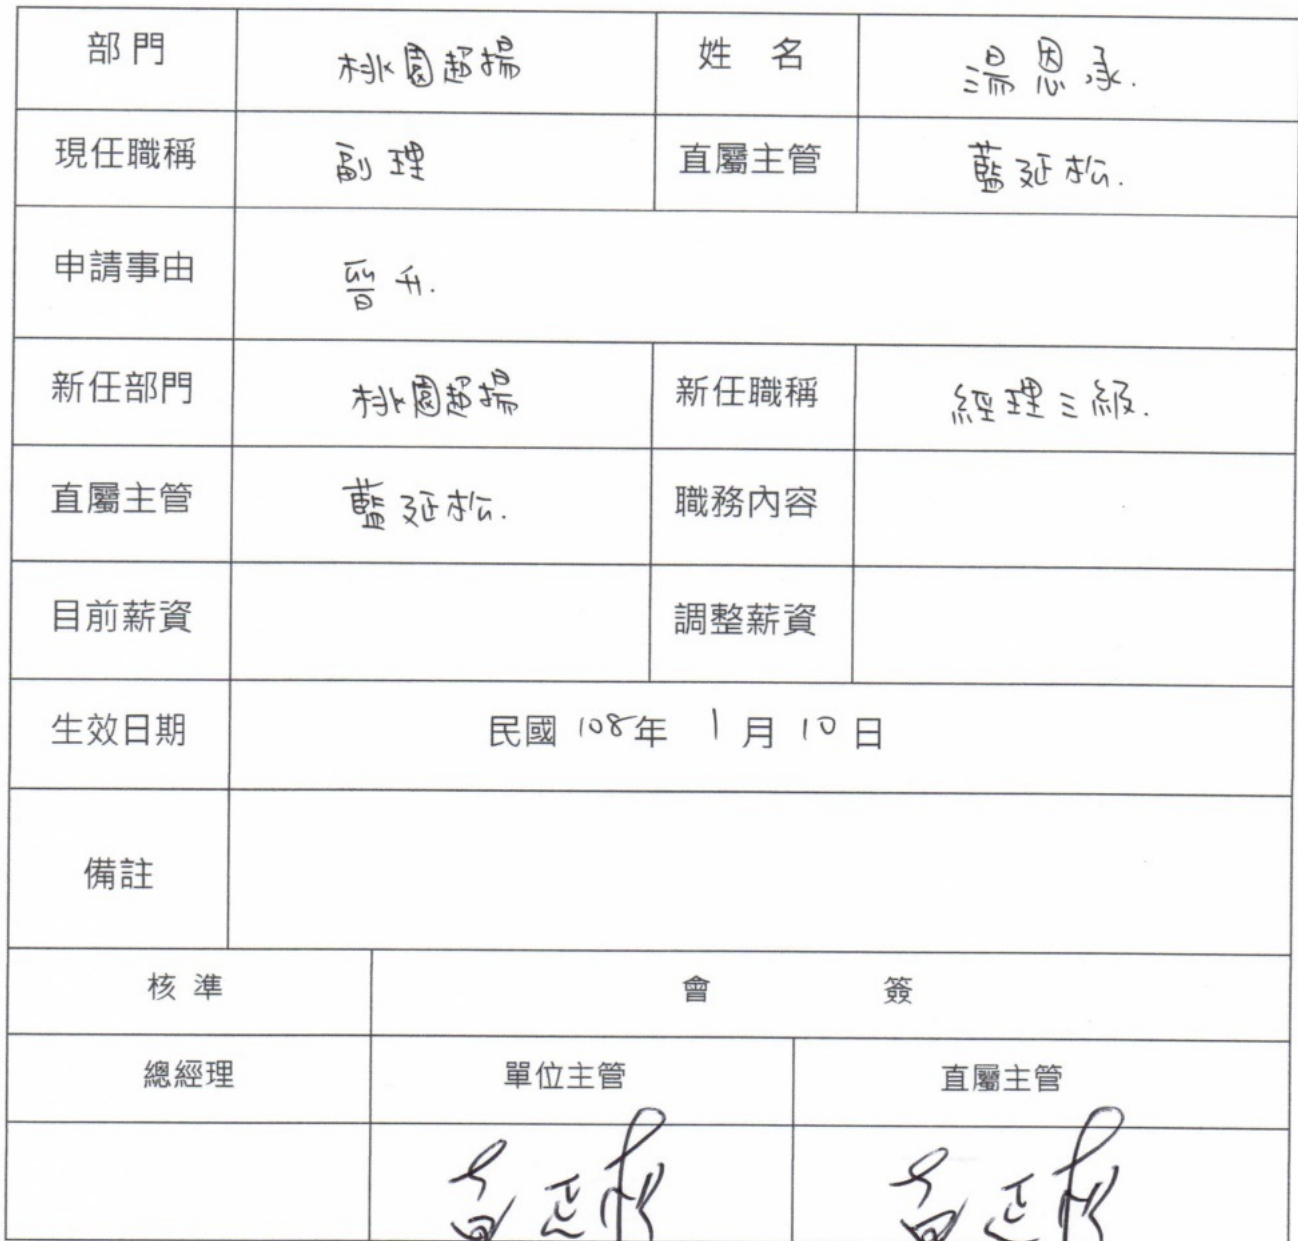 部門 桃園超揚 姓 名 湯恩承.
現任職稱 副理 直屬主管 藍延松.
申請事由 晉升.
新任部門 桃園超揚 新任職稱 經理三級.
直屬主管 藍延松. 職務內容
目前薪資 調整薪資
生效日期 民國 108年 1月 10日
備註
核 準 會 簽
總經理 單位主管 直屬主管